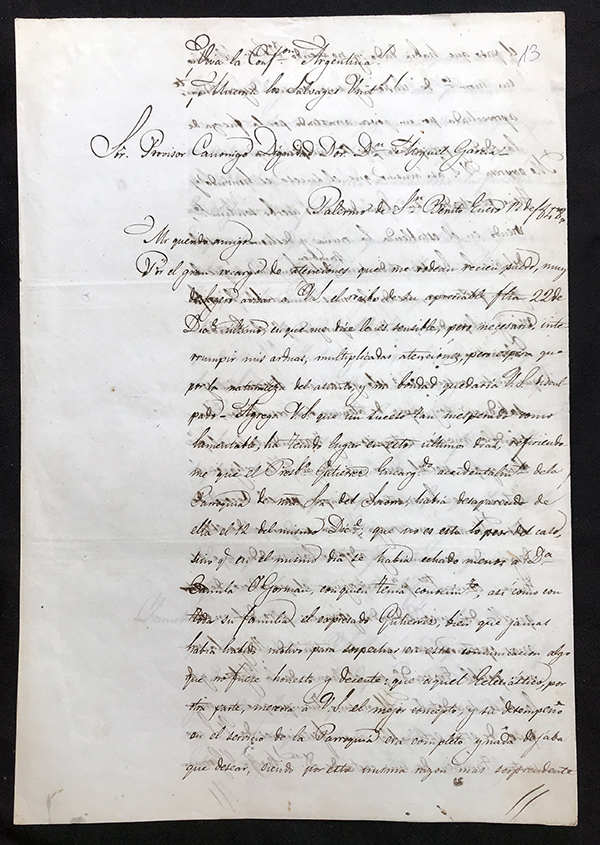 ¡Viva la Confon. Argentina!
¡Mueran los Salvages Units.!
13
Sor. Provisor Canonigo Dignidad Dor. Dn. Miguel Garcia
Palermo de Sn. Benito Enero 12 de
Mi querido amigo
Por el gran recargo de atenciones que me rodean recien puedo, muy
á la ligera avisar a V.S. el recibo de su apreciable fha 22 de
Dice. ultimo, en que me dice le es sensible, pero necesario, inte
rrumpir mis arduas, multiplicadas atenciones, pero espera que
por la naturaleza del asunto, y mi bondad quedaría V.S. discul
pado. Agrega V.S. que un suceso tan inesperado como
lamentable, ha tenido lugar en estos ultimos dias, refiriendo
me que el Presbo. Gutierrez encargdo. accidentalmte. de la
Parroquia de nra Sra. del Socorro, había desaparecido de
ella el 12 del mismo Dice., que no es esto lo peor del caso,
sino qe. en el mismo dia se había echado menos a Da.
Camila O'Gorman, con quien tenía conocimto., así como con
toda su familia el expresado Gutierrez, bien que jamas
había habido motivo para sospechar en esta comunicacion algo
que no fuese honesto y decente: que aquel Eclesiástico, por
otra parte, merecia á V.S. el mejor concepto, y su desempeño
en el servicio de la Parroquia era completo y nada dejaba
que desear, siendo por esta misma razon mas sorprendente